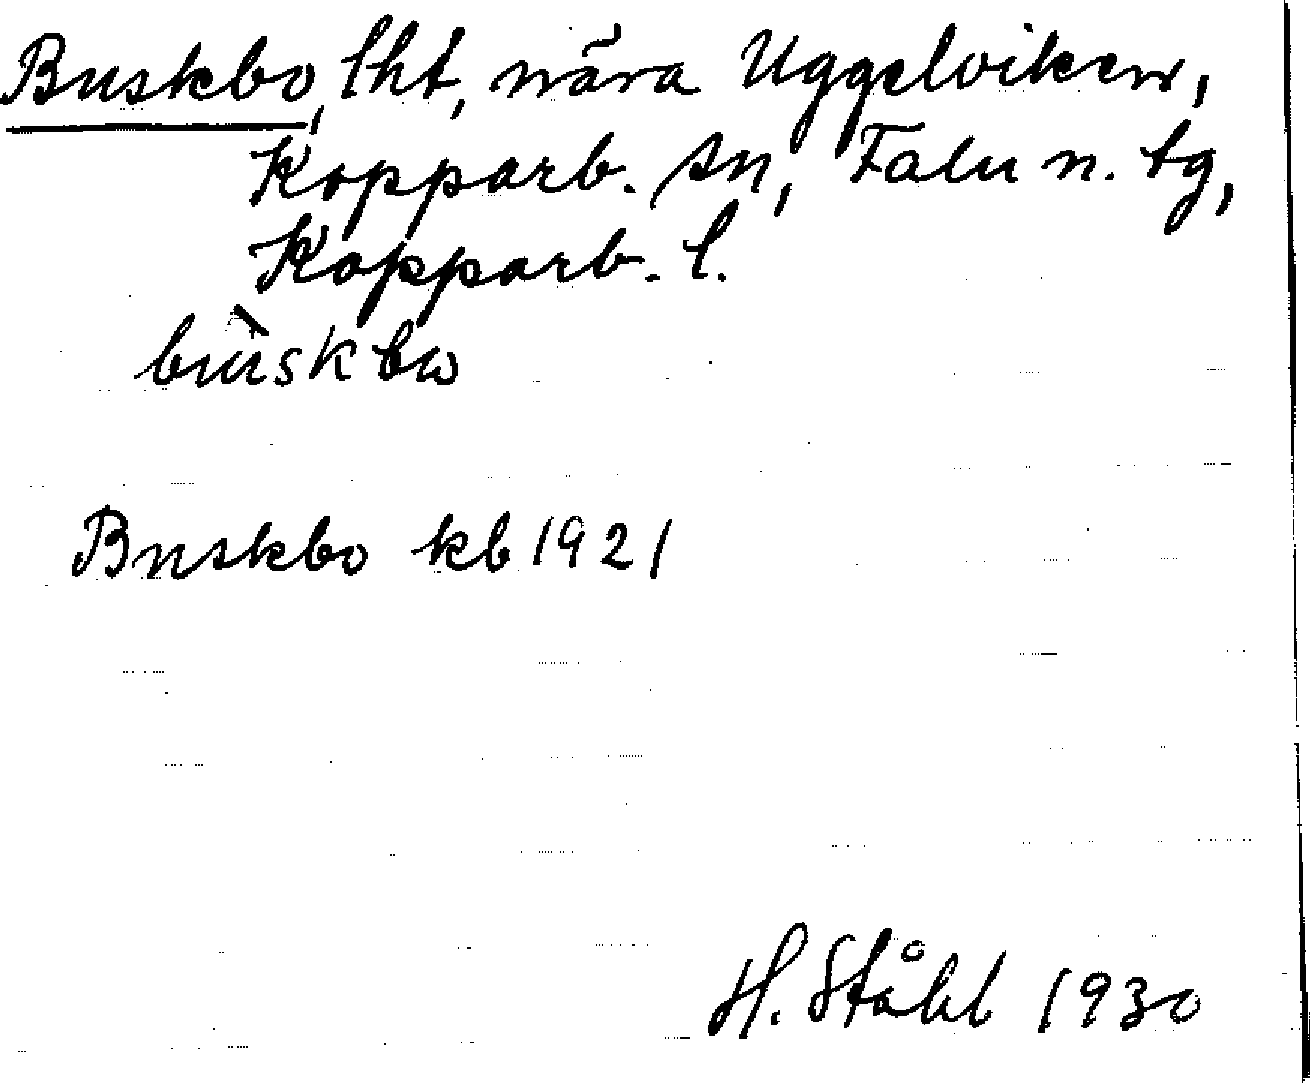 Buskbo, lht, nära Uggelviken,
Kopparb. sn, Falu n. tg,
Kopparb. l.
bùskbω
Buskbo kb 1921
H. Ståhl 1930